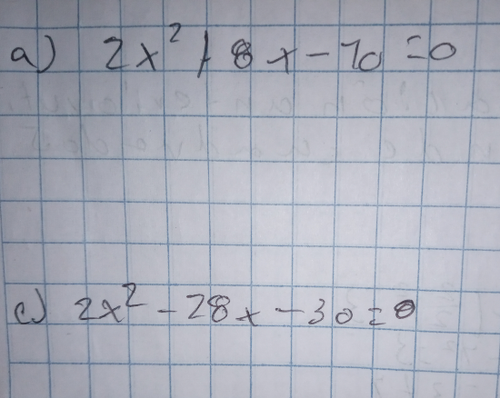 a) 2x² + 8x - 10 = 0
c) 2x² - 28x - 30 = 0